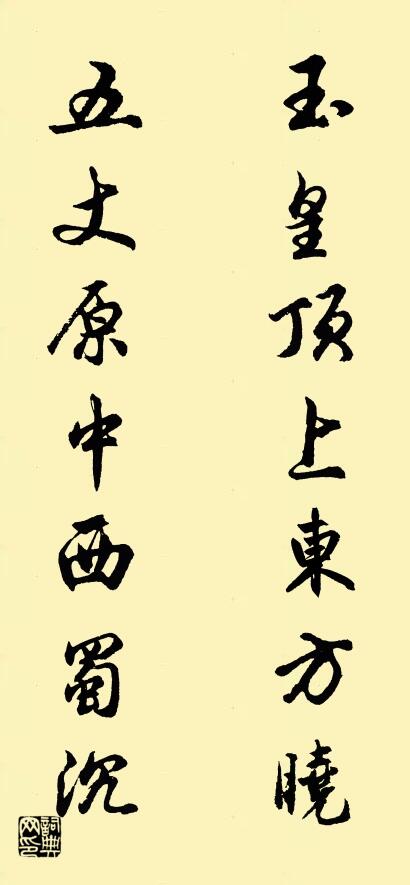 玉皇頂上東方曉
五丈原中西蜀沉
詞典網印